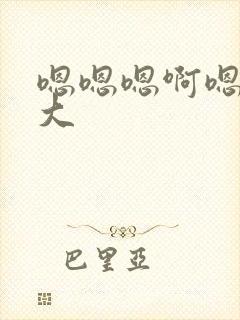 嗯嗯嗯啊嗯
大
巴里亞